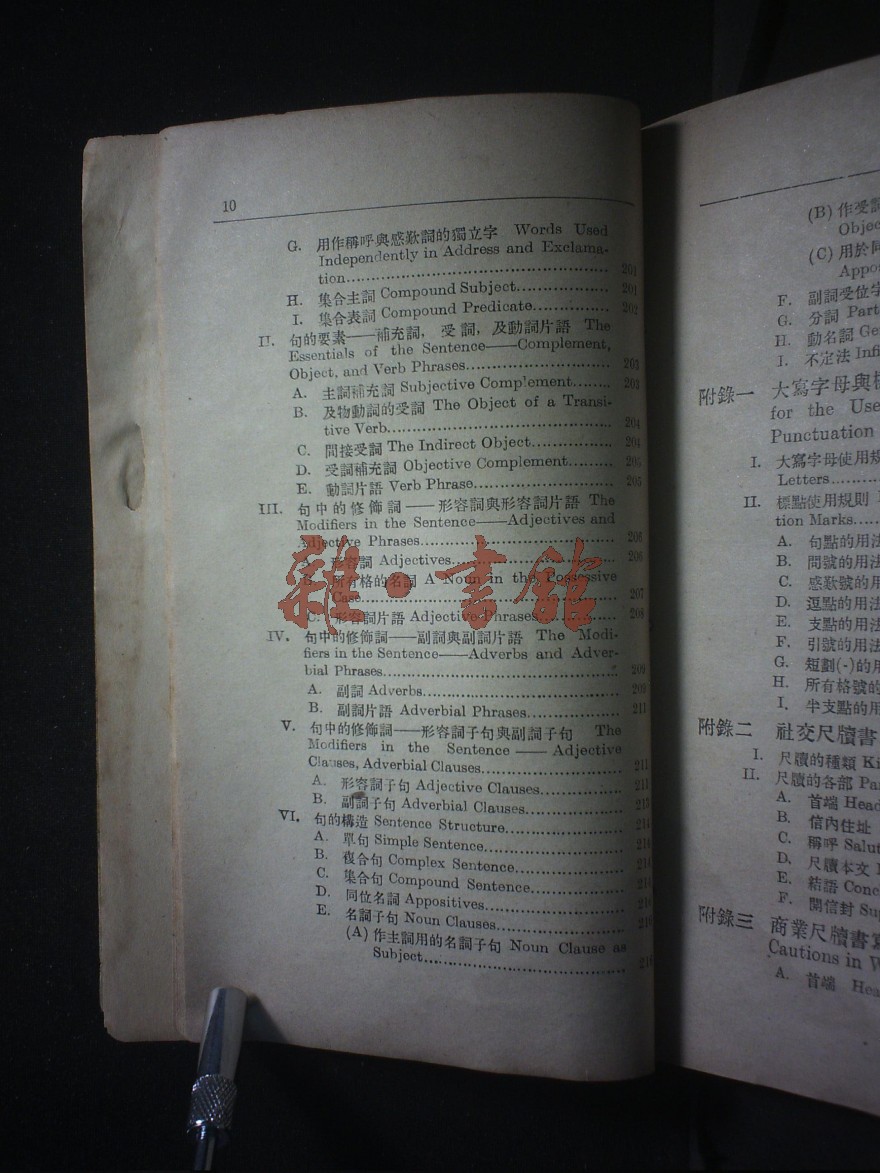 10
G. 用作稱呼與感歎詞的獨立字 Words Used
Independently in Address and Exclama-
tion 201
H. 集合主詞 Compound Subject 201
I. 集合表詞 Compound Predicate 202
II. 句的要素——補充詞，受詞，及動詞片語 The
Essentials of the Sentence——Complement,
Object, and Verb Phrases 203
A. 主詞補充詞 Subjective Complement 203
B. 及物動詞的受詞 The Object of a Transi-
tive Verb 204
C. 間接受詞 The Indirect Object 204
D. 受詞補充詞 Objective Complement 205
E. 動詞片語 Verb Phrase 205
III. 句中的修飾詞——形容詞與形容詞片語 The
Modifiers in the Sentence——Adjectives and
Adjective Phrases 206
A. 形容詞 Adjectives 206
所有格的名詞 A Noun in the Possessive
Case 207
C. 形容詞片語 Adjective Phrases 208
IV. 句中的修飾詞——副詞與副詞片語 The Modi-
fiers in the Sentence——Adverbs and Adver-
bial Phrases 209
A. 副詞 Adverbs 209
B. 副詞片語 Adverbial Phrases 211
V. 句中的修飾詞——形容詞子句與副詞子句 The
Modifiers in the Sentence——Adjective
Clauses, Adverbial Clauses 211
A. 形容詞子句 Adjective Clauses
B. 副詞子句 Adverbial Clauses
VI. 句的構造 Sentence Structure
A. 單句 Simple Sentence
B. 複合句 Complex Sentence
C. 集合句 Compound Sentence
D. 同位名詞 Appositives
E. 名詞子句 Noun Clauses
(A) 作主詞用的名詞子句 Noun Clause as
Subject
雜·書館
(B) 作受詞
Objec
(C) 用於同
Appo
F. 副詞受位字
G. 分詞 Part
H. 動名詞 Ge
I. 不定法 Infi
附錄一 大寫字母與
for the Use
Punctuation
I. 大寫字母使用規
Letters
II. 標點使用規則
tion Marks
A. 句點的用法
B. 問號的用法
C. 感歎號的用
D. 逗點的用法
E. 支點的用法
F. 引號的用法
G. 短劃(-)的用
H. 所有格號的
I. 半支點的用
附錄二 社交尺牘書
I. 尺牘的種類 Ki
II. 尺牘的各部 Par
A. 首端 Head
B. 信內住址
C. 稱呼 Salut
D. 尺牘本文
E. 結語 Conc
F. 開信封 Su
附錄三 商業尺牘書寫
Cautions in W
A. 首端 Hea